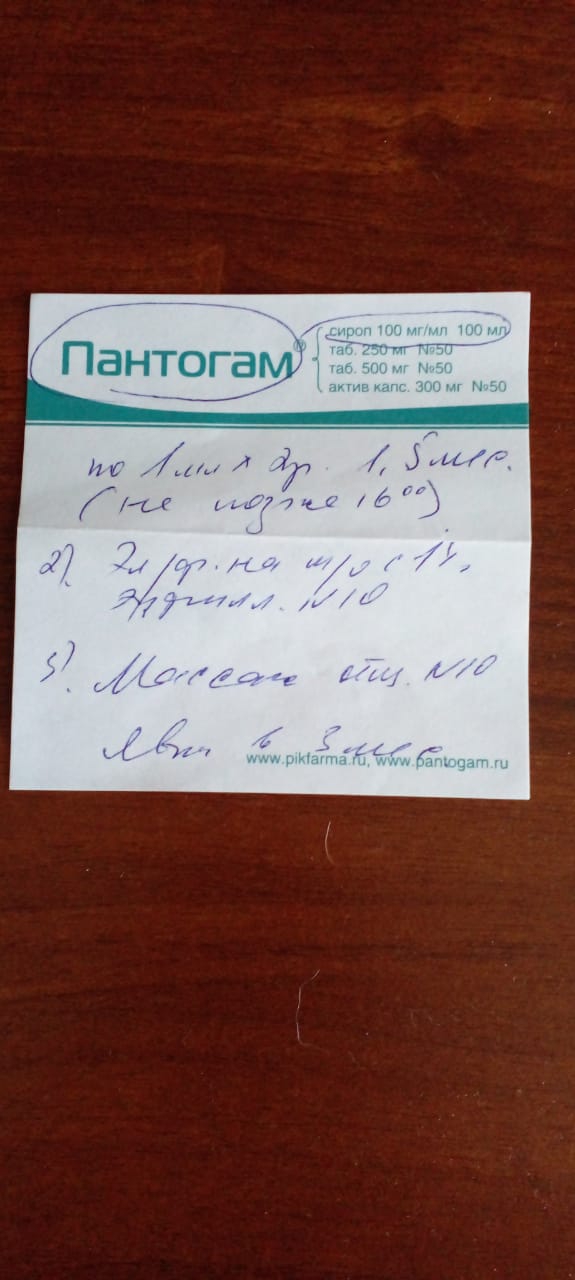 Пантогам®
сироп 100 мг/мл 100 мл
таб. 250 мг №50
таб. 500 мг №50
актив капс. 300 мг №50
по 1 мл х 2р. 1,5 мес.
(не позже 16⁰⁰)
2). Эл/ф. на ш/о с 1%
эуфилл. N10
3). Массаж общ. N10
Явка в 3 мес
www.pikfarma.ru, www.pantogam.ru